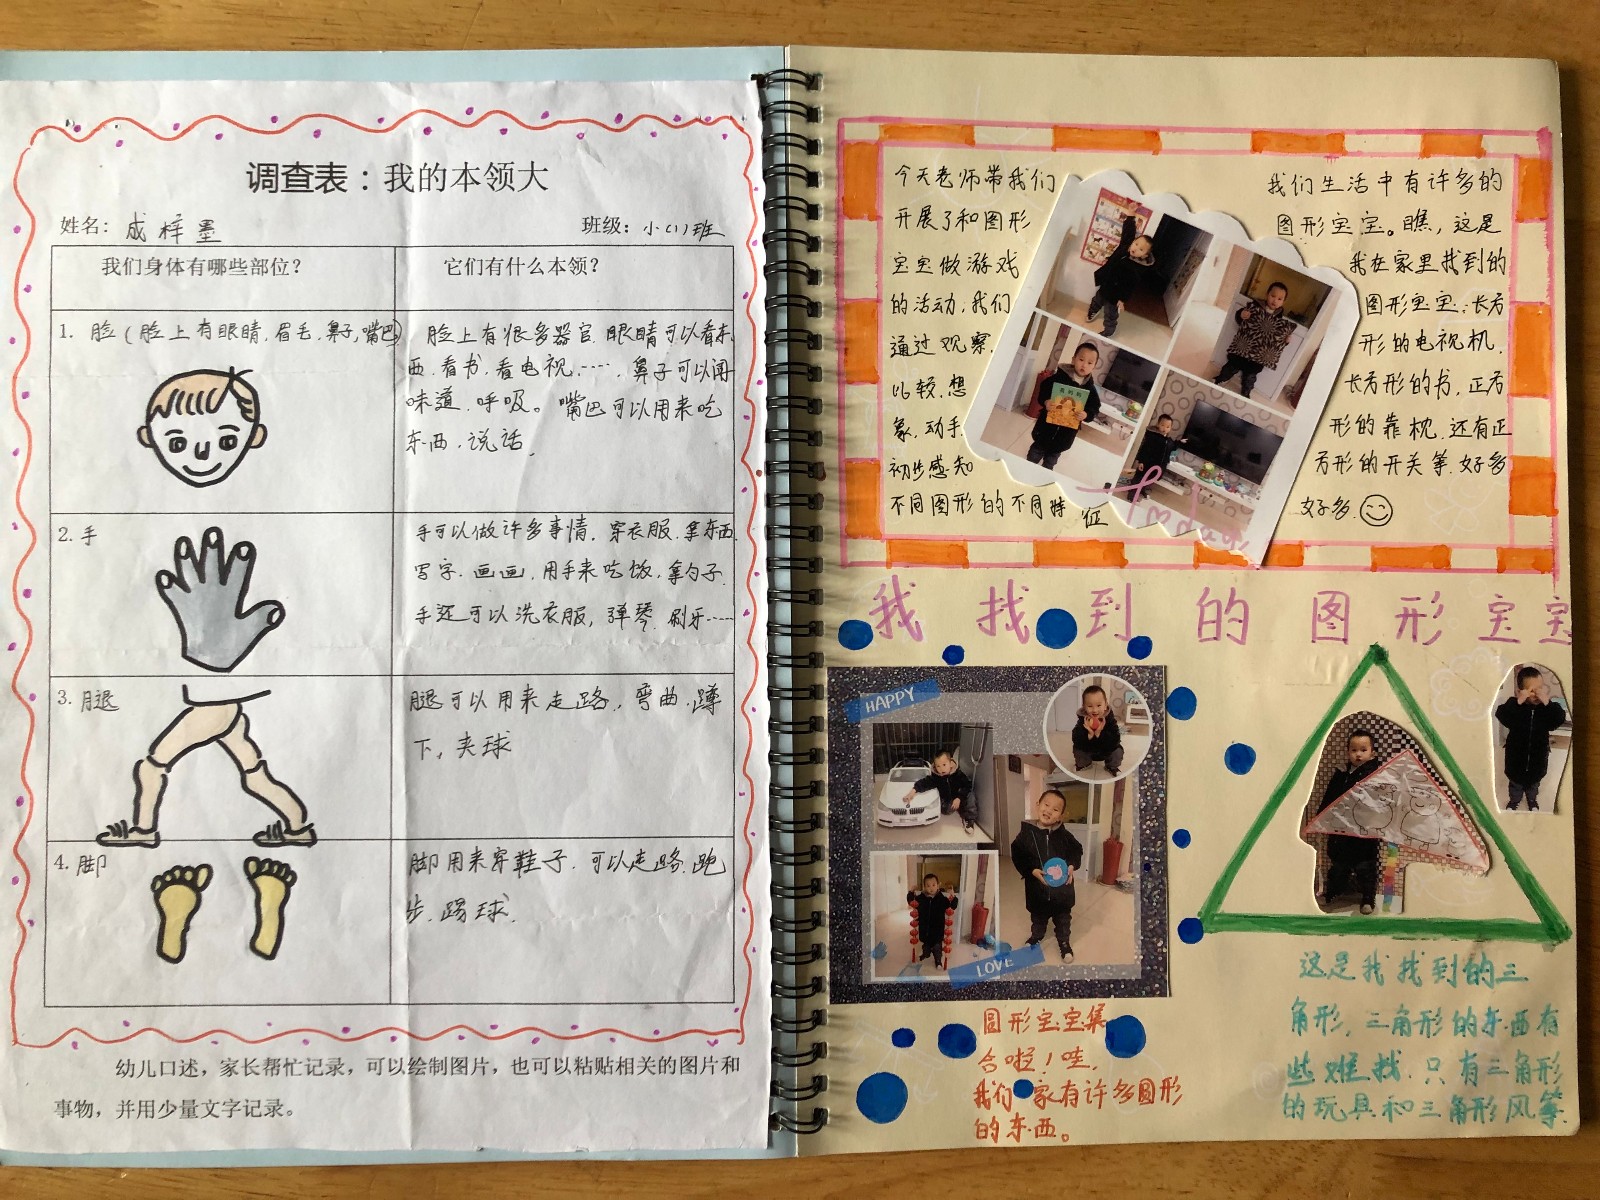 调查表：我的本领大
姓名：成梓墨 班级：小(1)班
我们身体有哪些部位？
它们有什么本领？
1. 脸（脸上有眼睛，眉毛，鼻子，嘴巴）
脸上有很多器官．眼睛可以看东
西．看书．看电视……．鼻子可以闻
味道．呼吸。嘴巴可以用来吃
东西．说话．
2. 手
手可以做许多事情．穿衣服．拿东西．
写字．画画．用手来吃饭．拿勺子．
手还可以洗衣服，弹琴．刷牙……
3. 腿
腿可以用来走路．弯曲．蹲
下，夹球
4. 脚
脚用来穿鞋子．可以走路．跑
步．踢球．
幼儿口述，家长帮忙记录，可以绘制图片，也可以粘贴相关的图片和
事物，并用少量文字记录。
今天老师带我们
开展了和图形
宝宝做游戏
的活动，我们
通过观察．
比较．想
象．动手．
初步感知
不同图形的不同特征
我们生活中有许多的
图形宝宝。瞧，这是
我在家里找到的
图形宝宝：长方
形的电视机．
长方形的书．正方
形的靠枕．还有正
方形的开关等．好多
好多．
Today
我找到的图形宝宝
HAPPY
LOVE
圆形宝宝集
合啦！哇，
我们家有许多圆形
的东西。
这是我找到的三
角形，三角形的东西有
些难找．只有三角形
的玩具和三角形风筝．